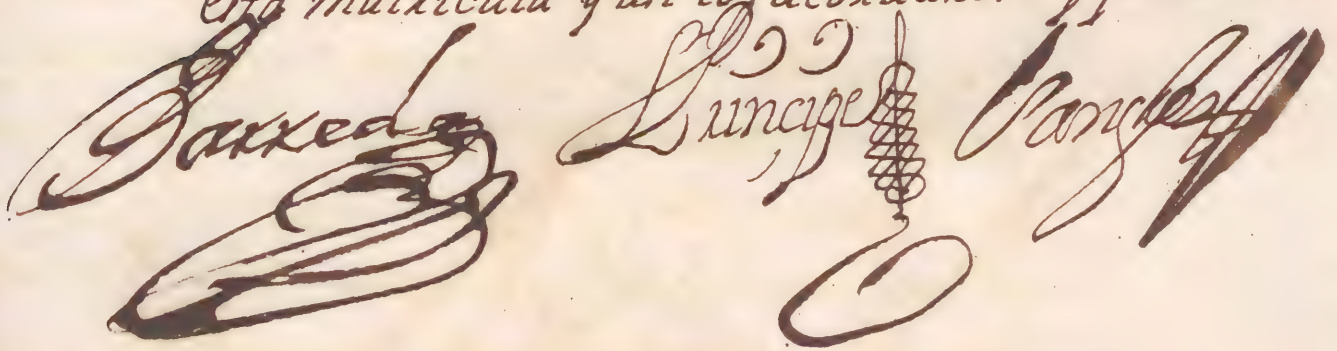 esta matricula y asi lo acordaron
Barreda Principe Vangles